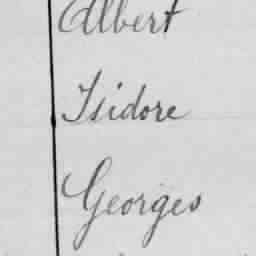 Albert
Isidore
Georges